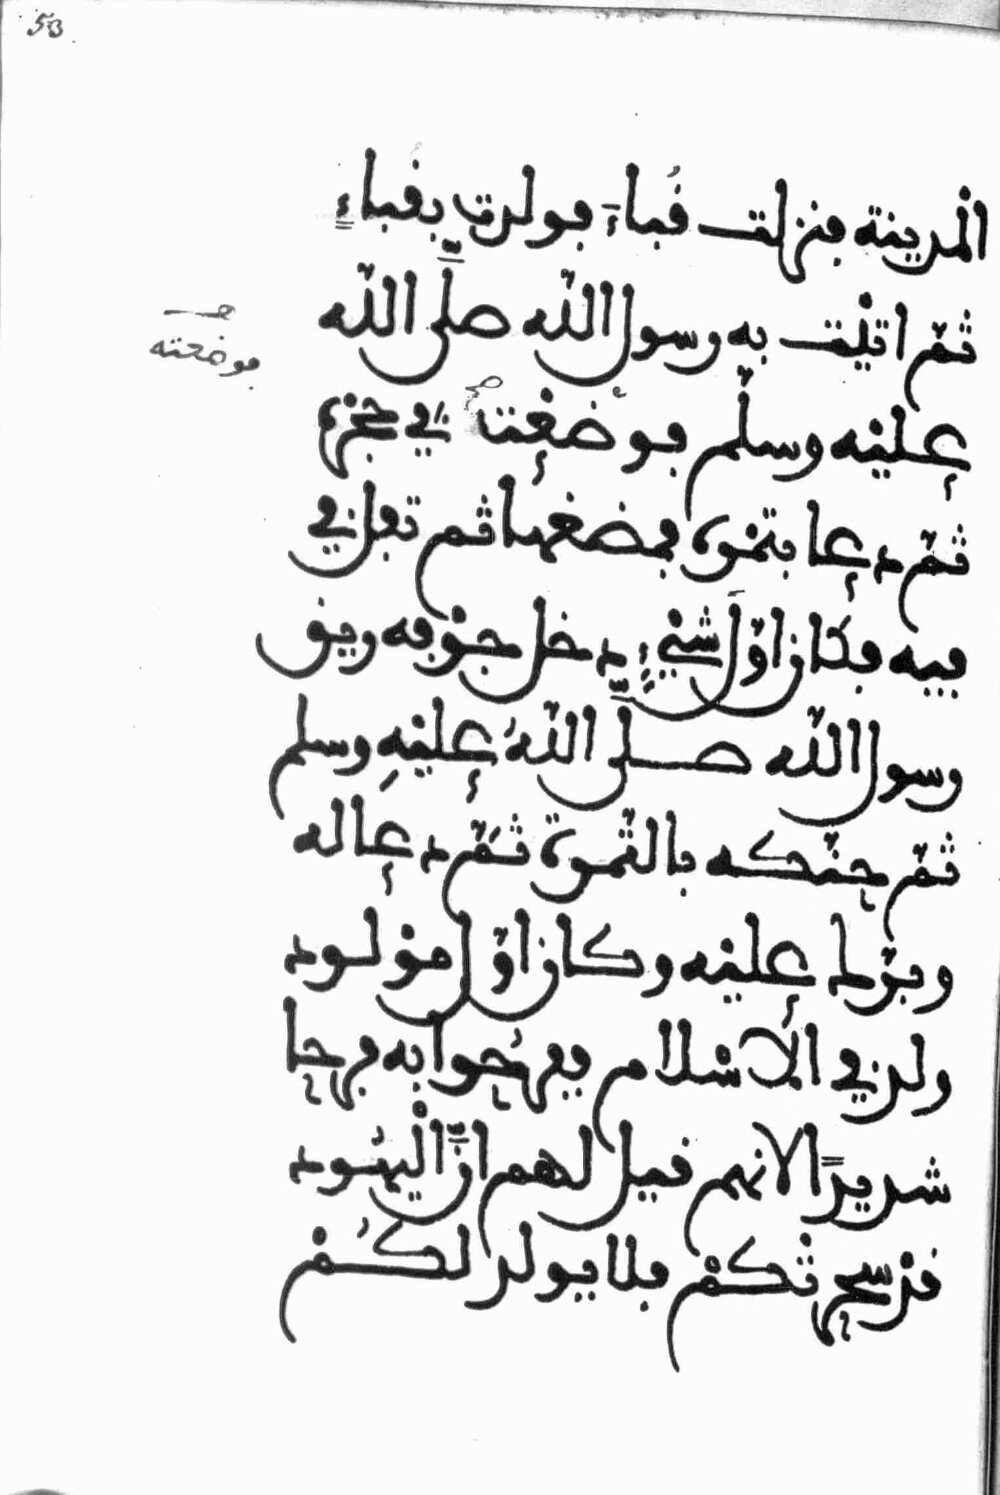 53
المدينة فنزلت قباء فولدت بقباء
ثم اتيت به رسول الله صلى الله
عليه وسلم فوضعت في حجره
ثم دعا بتمرة فمضغها ثم تفل في
فيه فكان اول شيء دخل جوفه ريق
رسول الله صلى الله عليه وسلم
ثم حنكه بالتمرة ثم دعا له
وبرك عليه وكان اول مولود
ولد في الاسلام ففرحوا به فرحا
شديدا لانهم قيل لهم ان اليهود
قد سحرتكم فلا يولد لكم
فوضعته